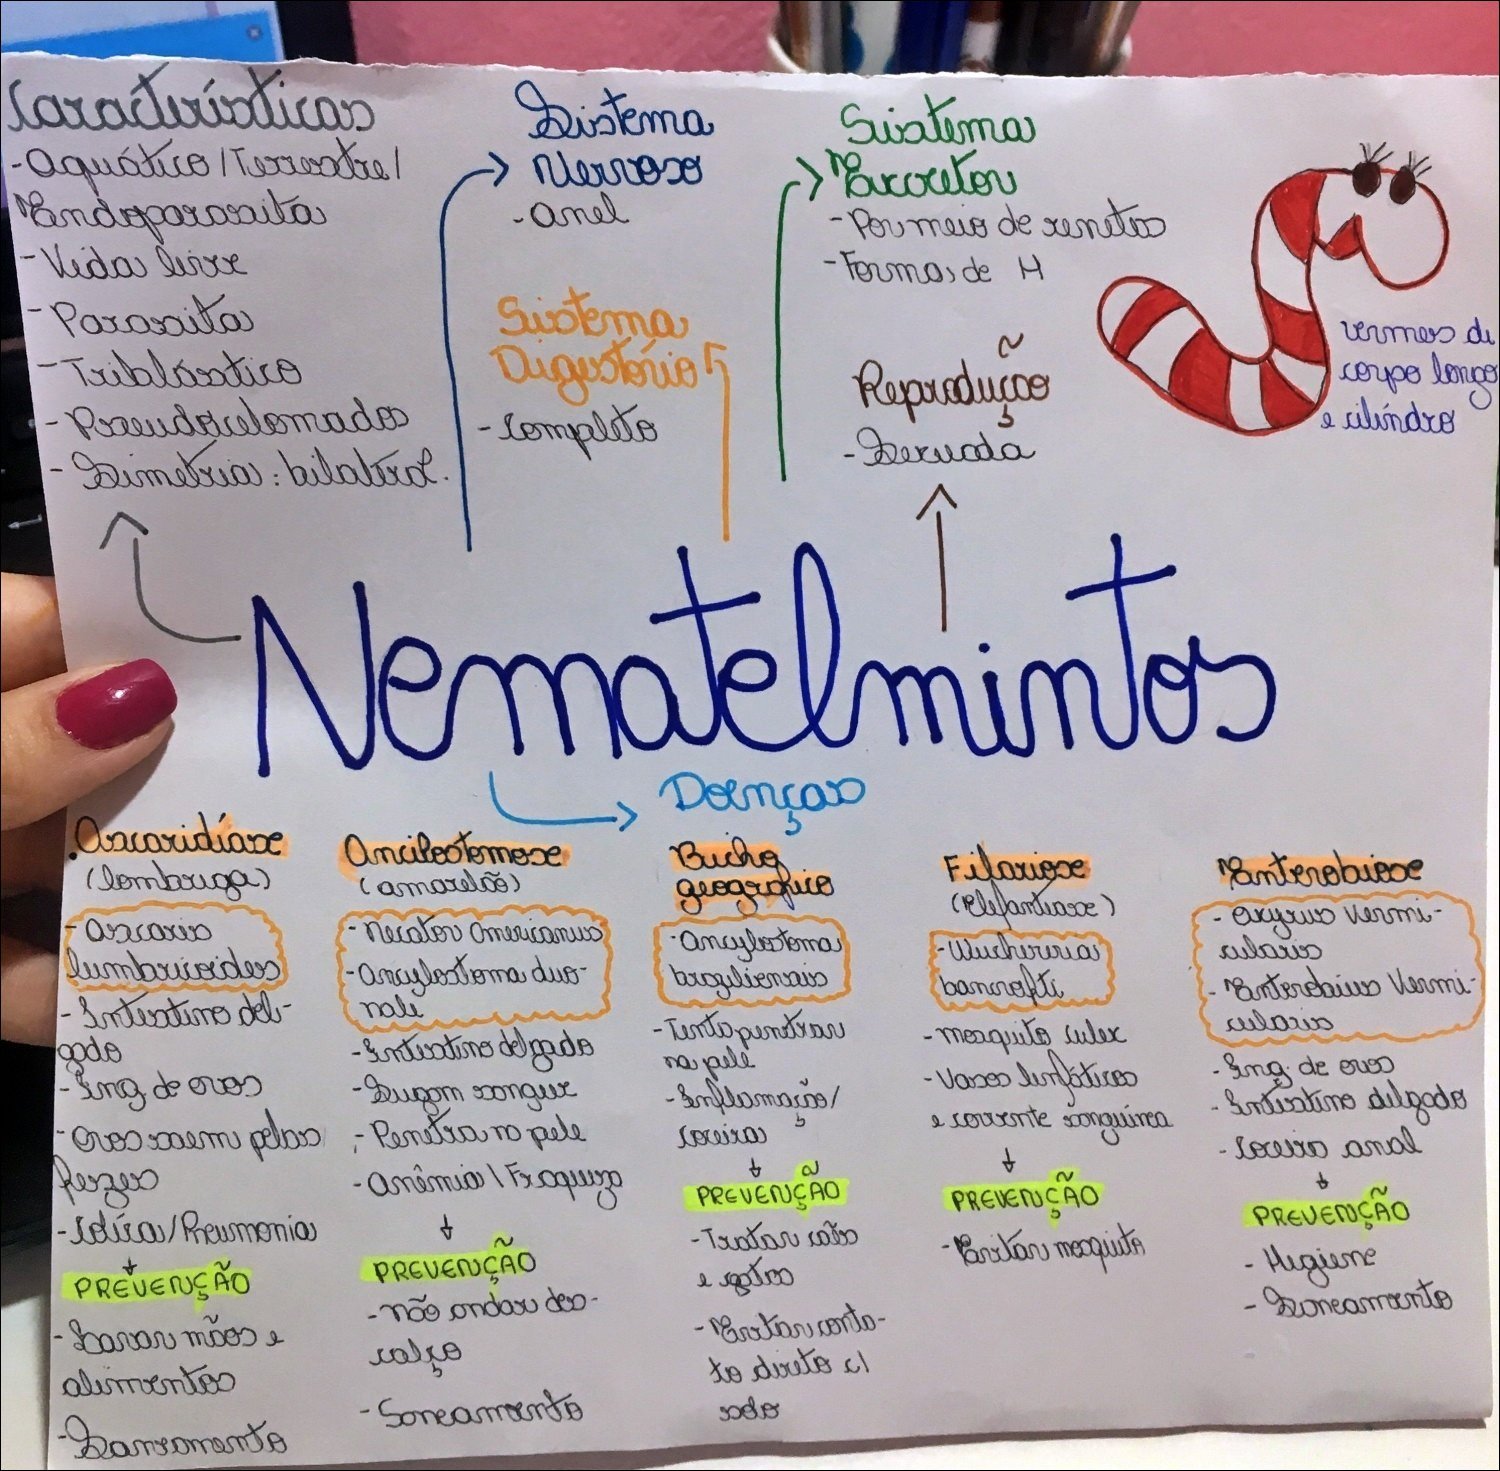 Características
- Aquático / Terrestre /
Endoparasita
- Vida livre
- Parasita
- Triblástico
- Pseudocelomados
- Simetria: bilateral.
Sistema
Nervoso
- Anel
Sistema
Digestório
- Completo
Sistema
Excretor
- Por meio de renetes
- Formas de H
Reprodução
- Sexuada
vermes de
corpo longo
e cilíndro
Nematelmintos
Doenças
Ascaridíase
(lombriga)
- Ascaris
lumbricoides
- Intestino del-
gado
- Ing. de ovos
- Ovos saem pelas
fezes
- Cólica/Pneumonia
PREVENÇÃO
- Lavar mãos e
alimentos
- Saneamento
Ancilostomose
(amarelão)
- Necator Americanus
- Ancylostoma duo-
nale
- Intestino delgado
- Sugam sangue
- Penetra na pele
- Anêmia \ Fraqueza
PREVENÇÃO
- Não andar des-
calço
- Saneamento
Bicho
geográfico
- Ancylostoma
braziliensis
- Tenta penetrar
na pele
- Inflamação/
coceira
PREVENÇÃO
- Tratar cães
e gatos
- Evitar conta-
to direto c/
solo
Filariose
(Elefantíase)
- Wuchereria
bancrofti
- Mosquito culex
- Vasos linfáticos
e corrente sanguínea
PREVENÇÃO
- Evitar mosquito
Enterobiose
- Oxyrus Vermi-
cularis
- Enterobius Vermi-
cularis
- Ing. de ovos
- Intestino delgado
- Coceira anal
PREVENÇÃO
- Higiene
- Saneamento